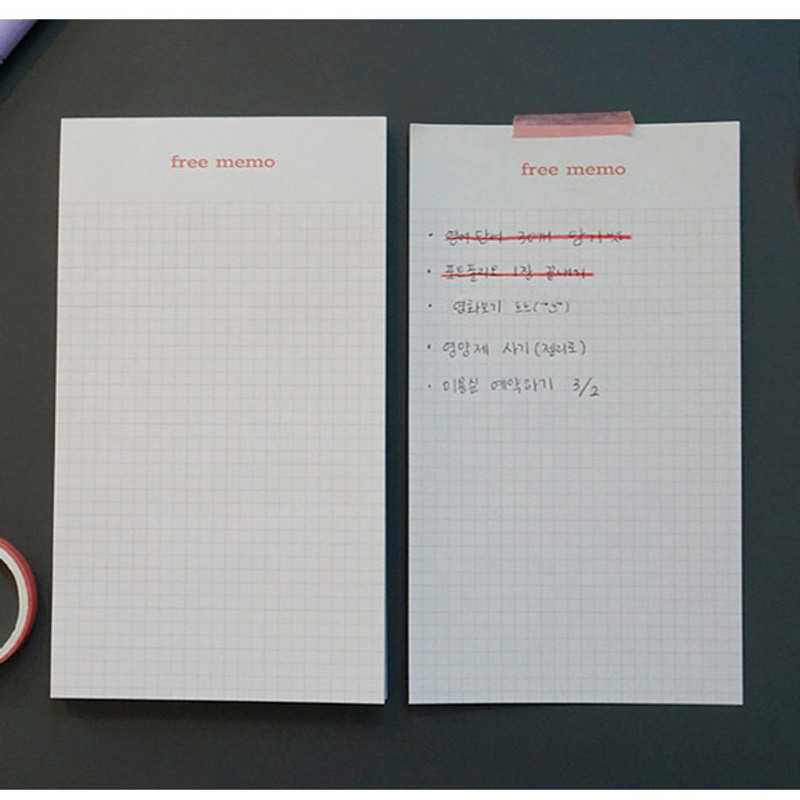 free memo
free memo
· 영어단어 30개 암기
· 포트폴리오 1장 끝내기
영화보기
· 영양제 사기 (젤리로)
· 미용실 예약하기 3/2